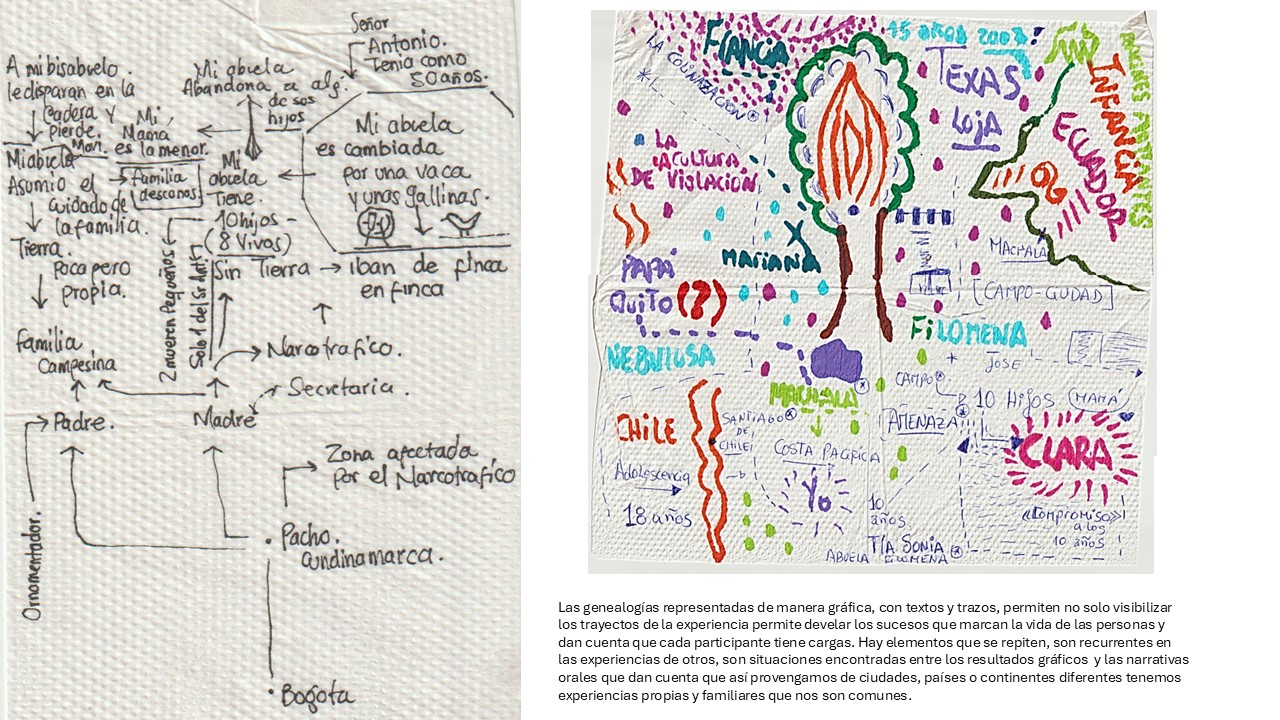 Señor
Antonio.
Tenia como
50 años.
A mi bisabuelo.
le disparan en la
Cadera y
pierde.
Mi abuela
Asumio el
cuidado de
la familia.
Tierra.
Poca pero
propia.
Familia
Campesina
Padre.
Ornamentador.
Mi abuela
Abandona a alg.
de sos
hijos
Mi
Mama
es la menor.
familia
descones.
Mi
abuela
tiene.
10 hijos
(8 Vivos)
2 mueren Pequeños
Solo 1 del Sr Ant.
Mi abuela
es cambiada
por una vaca
y unas gallinas.
Sin Tierra → iban de finca
en finca
Narcotrafico.
Secretaria.
Madre
Zona afectada
Por el Narcotrafico
Pacho.
Cundinamarca.
Bogota
FRANCIA
LA COLINIZACIÓN
LA
CULTURA
DE VIOLACIÓN
MARIANA
PAPÁ
QUITO (?)
NEBULOSA
15 AÑOS 2007!
TEXAS
LOJA
INFANCIA
ECUADOR
MACHALA
[CAMPO-CIUDAD]
FILOMENA
+
JOSÉ
CAMPO
10 HIJOS (MAMÁ)
AMENAZA
CLARA
«Compromiso»
a los
10 años
MACHALA
COSTA PACIFICA
Yo
CHILE
SANTIAGO
DE
CHILE
Adolescencia
18 años
10
años.
TÍA SONIA
ABUELA FILOMENA
Las genealogías representadas de manera gráfica, con textos y trazos, permiten no solo visibilizar
los trayectos de la experiencia permite develar los sucesos que marcan la vida de las personas y
dan cuenta que cada participante tiene cargas. Hay elementos que se repiten, son recurrentes en
las experiencias de otros, son situaciones encontradas entre los resultados gráficos y las narrativas
orales que dan cuenta que así provengamos de ciudades, países o continentes diferentes tenemos
experiencias propias y familiares que nos son comunes.